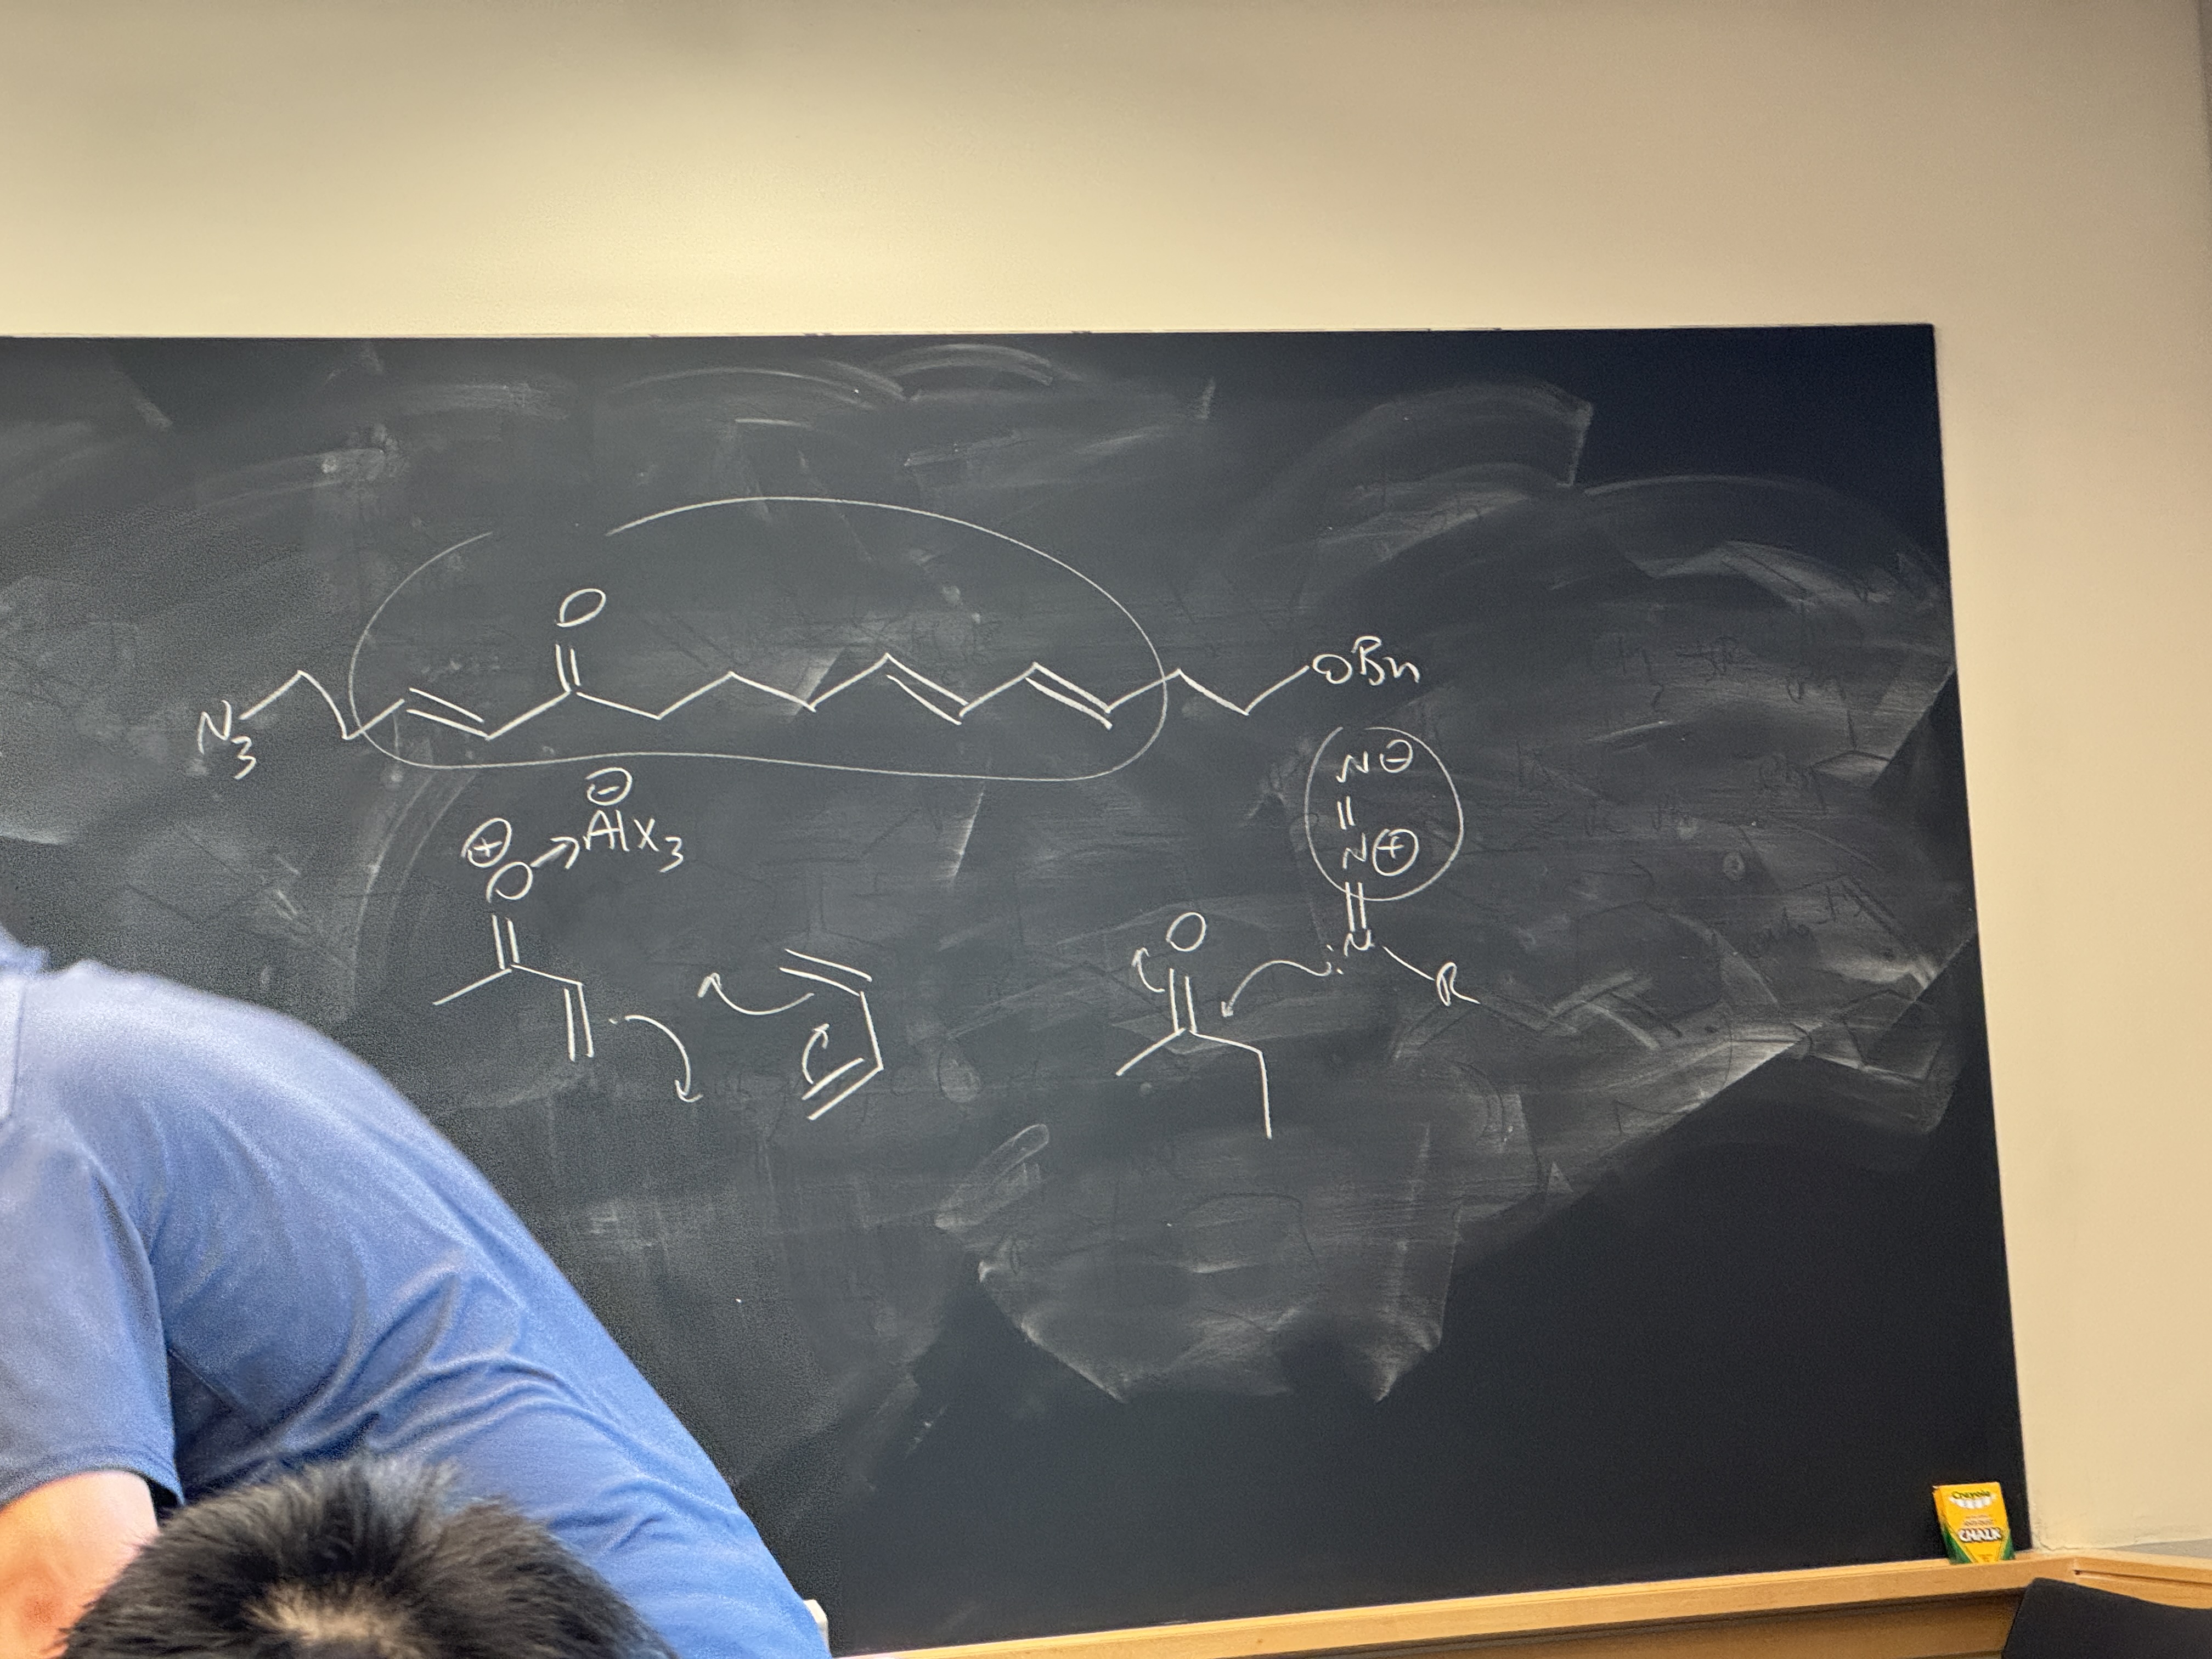 O
N3
OBn
⊖
AlX3
⊕
O
N⊖
N⊕
N
R
O
Crayola
CHALK